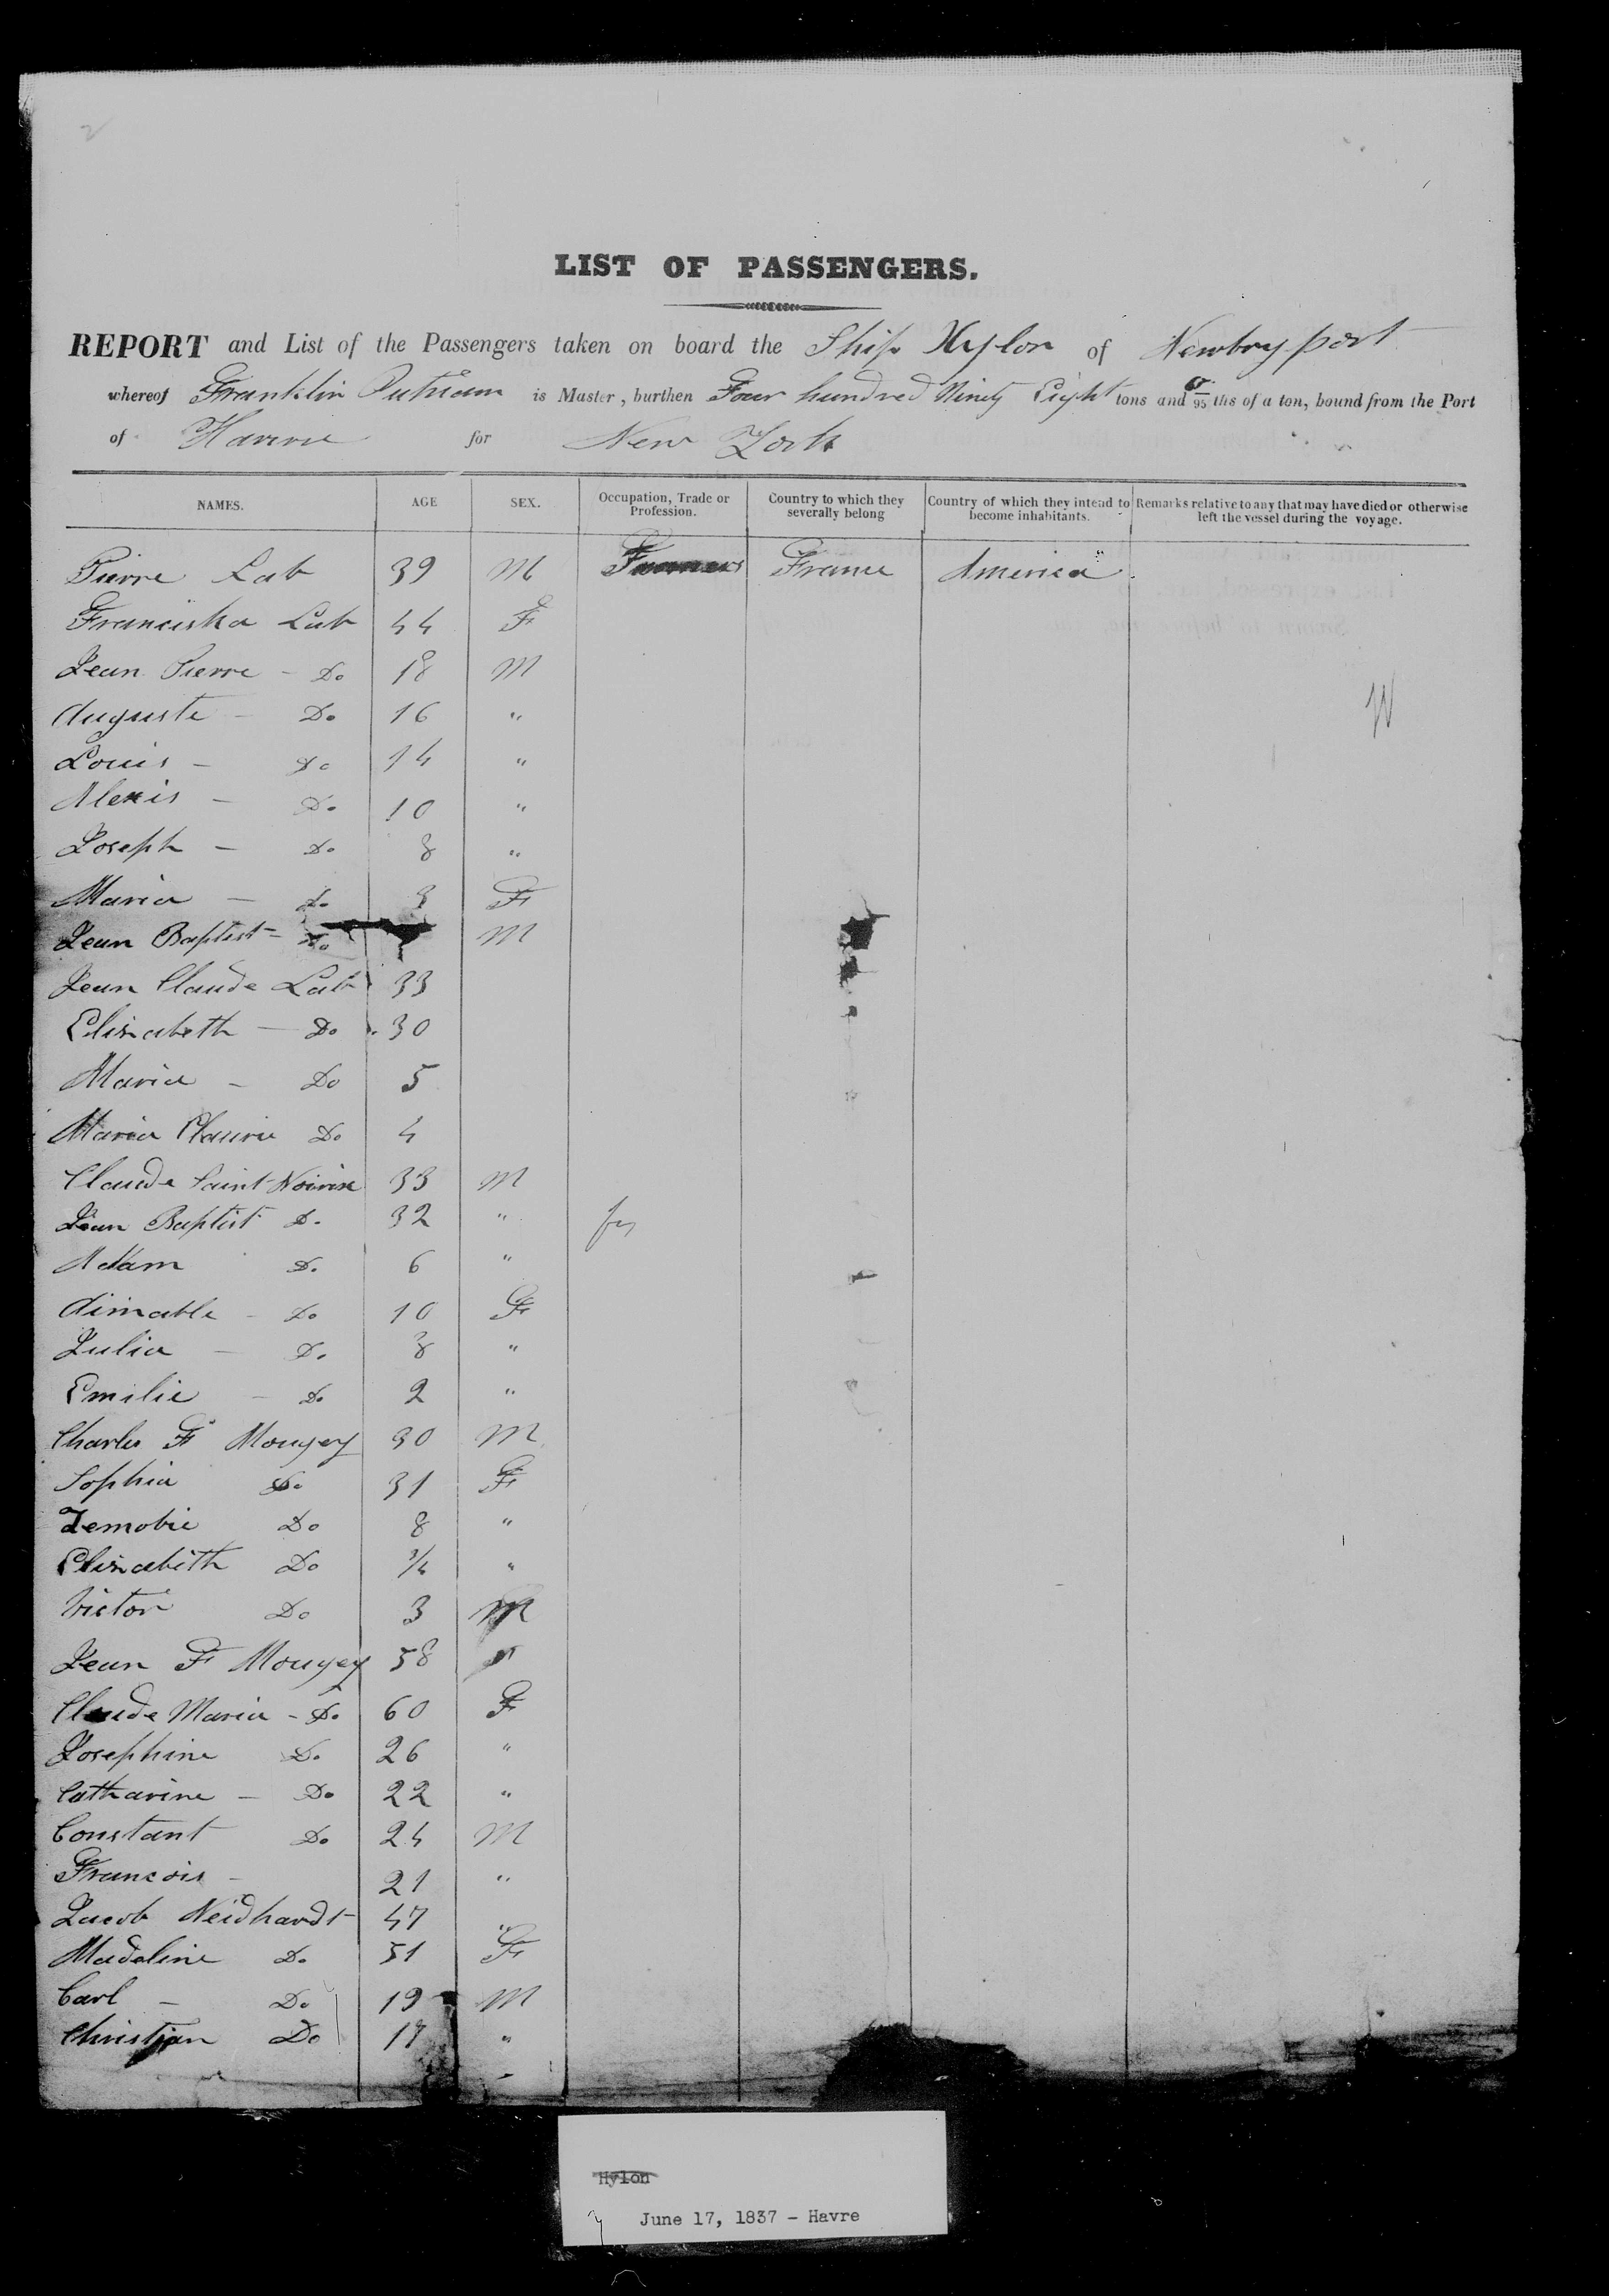 LIST OF PASSENGERS.
REPORT and List of the Passengers taken on board the Ship Hylon of Newburyport
whereof Franklin Putnam is Master, burthen Four hundred Ninety Eight tons and 95 ths of a ton, bound from the Port
of Havre for New York
NAMES. AGE SEX. Occupation, Trade or Profession. Country to which they severally belong Country of which they intend to become inhabitants. Remarks relative to any that may have died or otherwise left the vessel during the voyage.
Pierre Lab 39 M Farmers France America
Franciska Lab 44 F
Jean Pierre - Do 18 M
Auguste - Do 16 "
Louis - Do 14 "
Alexis - Do 10 "
Joseph - Do 8 "
Maria - Do 3 F
Jean Baptist - Do M
Jean Claude Lab 33
Elisabeth - Do 30
Maria - Do 5
Maria Do 4
Claude Saint 33 M
Jean Baptist Do 32 "
Adam Do 6 "
Aimable - Do 10 F
Julia - Do 8 "
Emilie - Do 2 "
Charles F Mougey 30 M
Sophia Do 31 F
Zenobie Do 8 "
Elisabeth Do 3/4 "
Victor Do 3 M
Jean F Mougey 58 "
Claude Maria - Do 60 F
Josephine Do 26 "
Catharine - Do 22 "
Constant Do 24 M
Francois - 21 "
Jacob Neidhardt 47 "
Madeline Do 51 F
Carl - Do 19 M
Christian Do 17 "
Hylon
June 17, 1837 - Havre